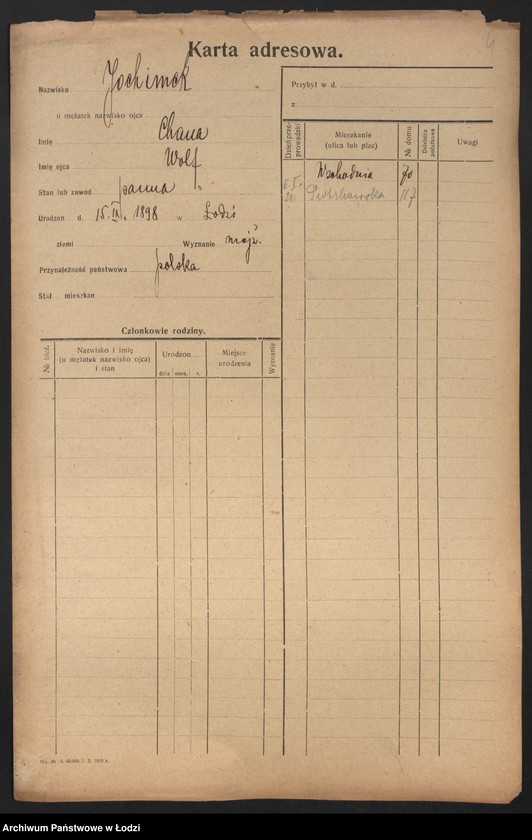 Karta adresowa.
4
Nazwisko Jochimek
u mężatek nazwisko ojca
Imię Chana
Imię ojca Wolf
Stan lub zawód panna
Urodzon d. 15.IX. 1898 w Łodzi
ziemi Wyznanie mojż.
Przynależność państwowa polska
Stał mieszkan
Przybył w d.
z
Dzień przeprowadzki
Mieszkanie (ulica lub plac)
№ domu
Dzielnica podatkowa
Uwagi
Wschodnia 70
Piotrkowska 117
Członkowie rodziny.
№ bież.
Nazwisko i imię
(u mężatek nazwisko ojca)
i stan
Urodzon
dnia mies. r.
Miejsce urodzenia
Wyznanie
Archiwum Państwowe w Łodzi